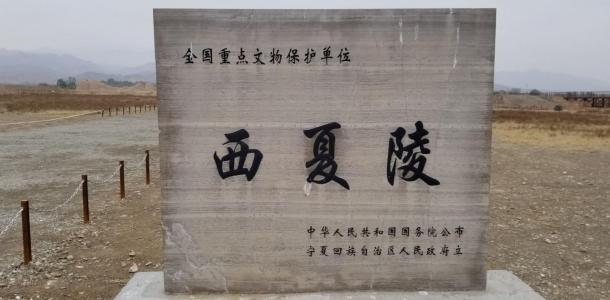 全国重点文物保护单位
西夏陵
中华人民共和国国务院公布
宁夏回族自治区人民政府立